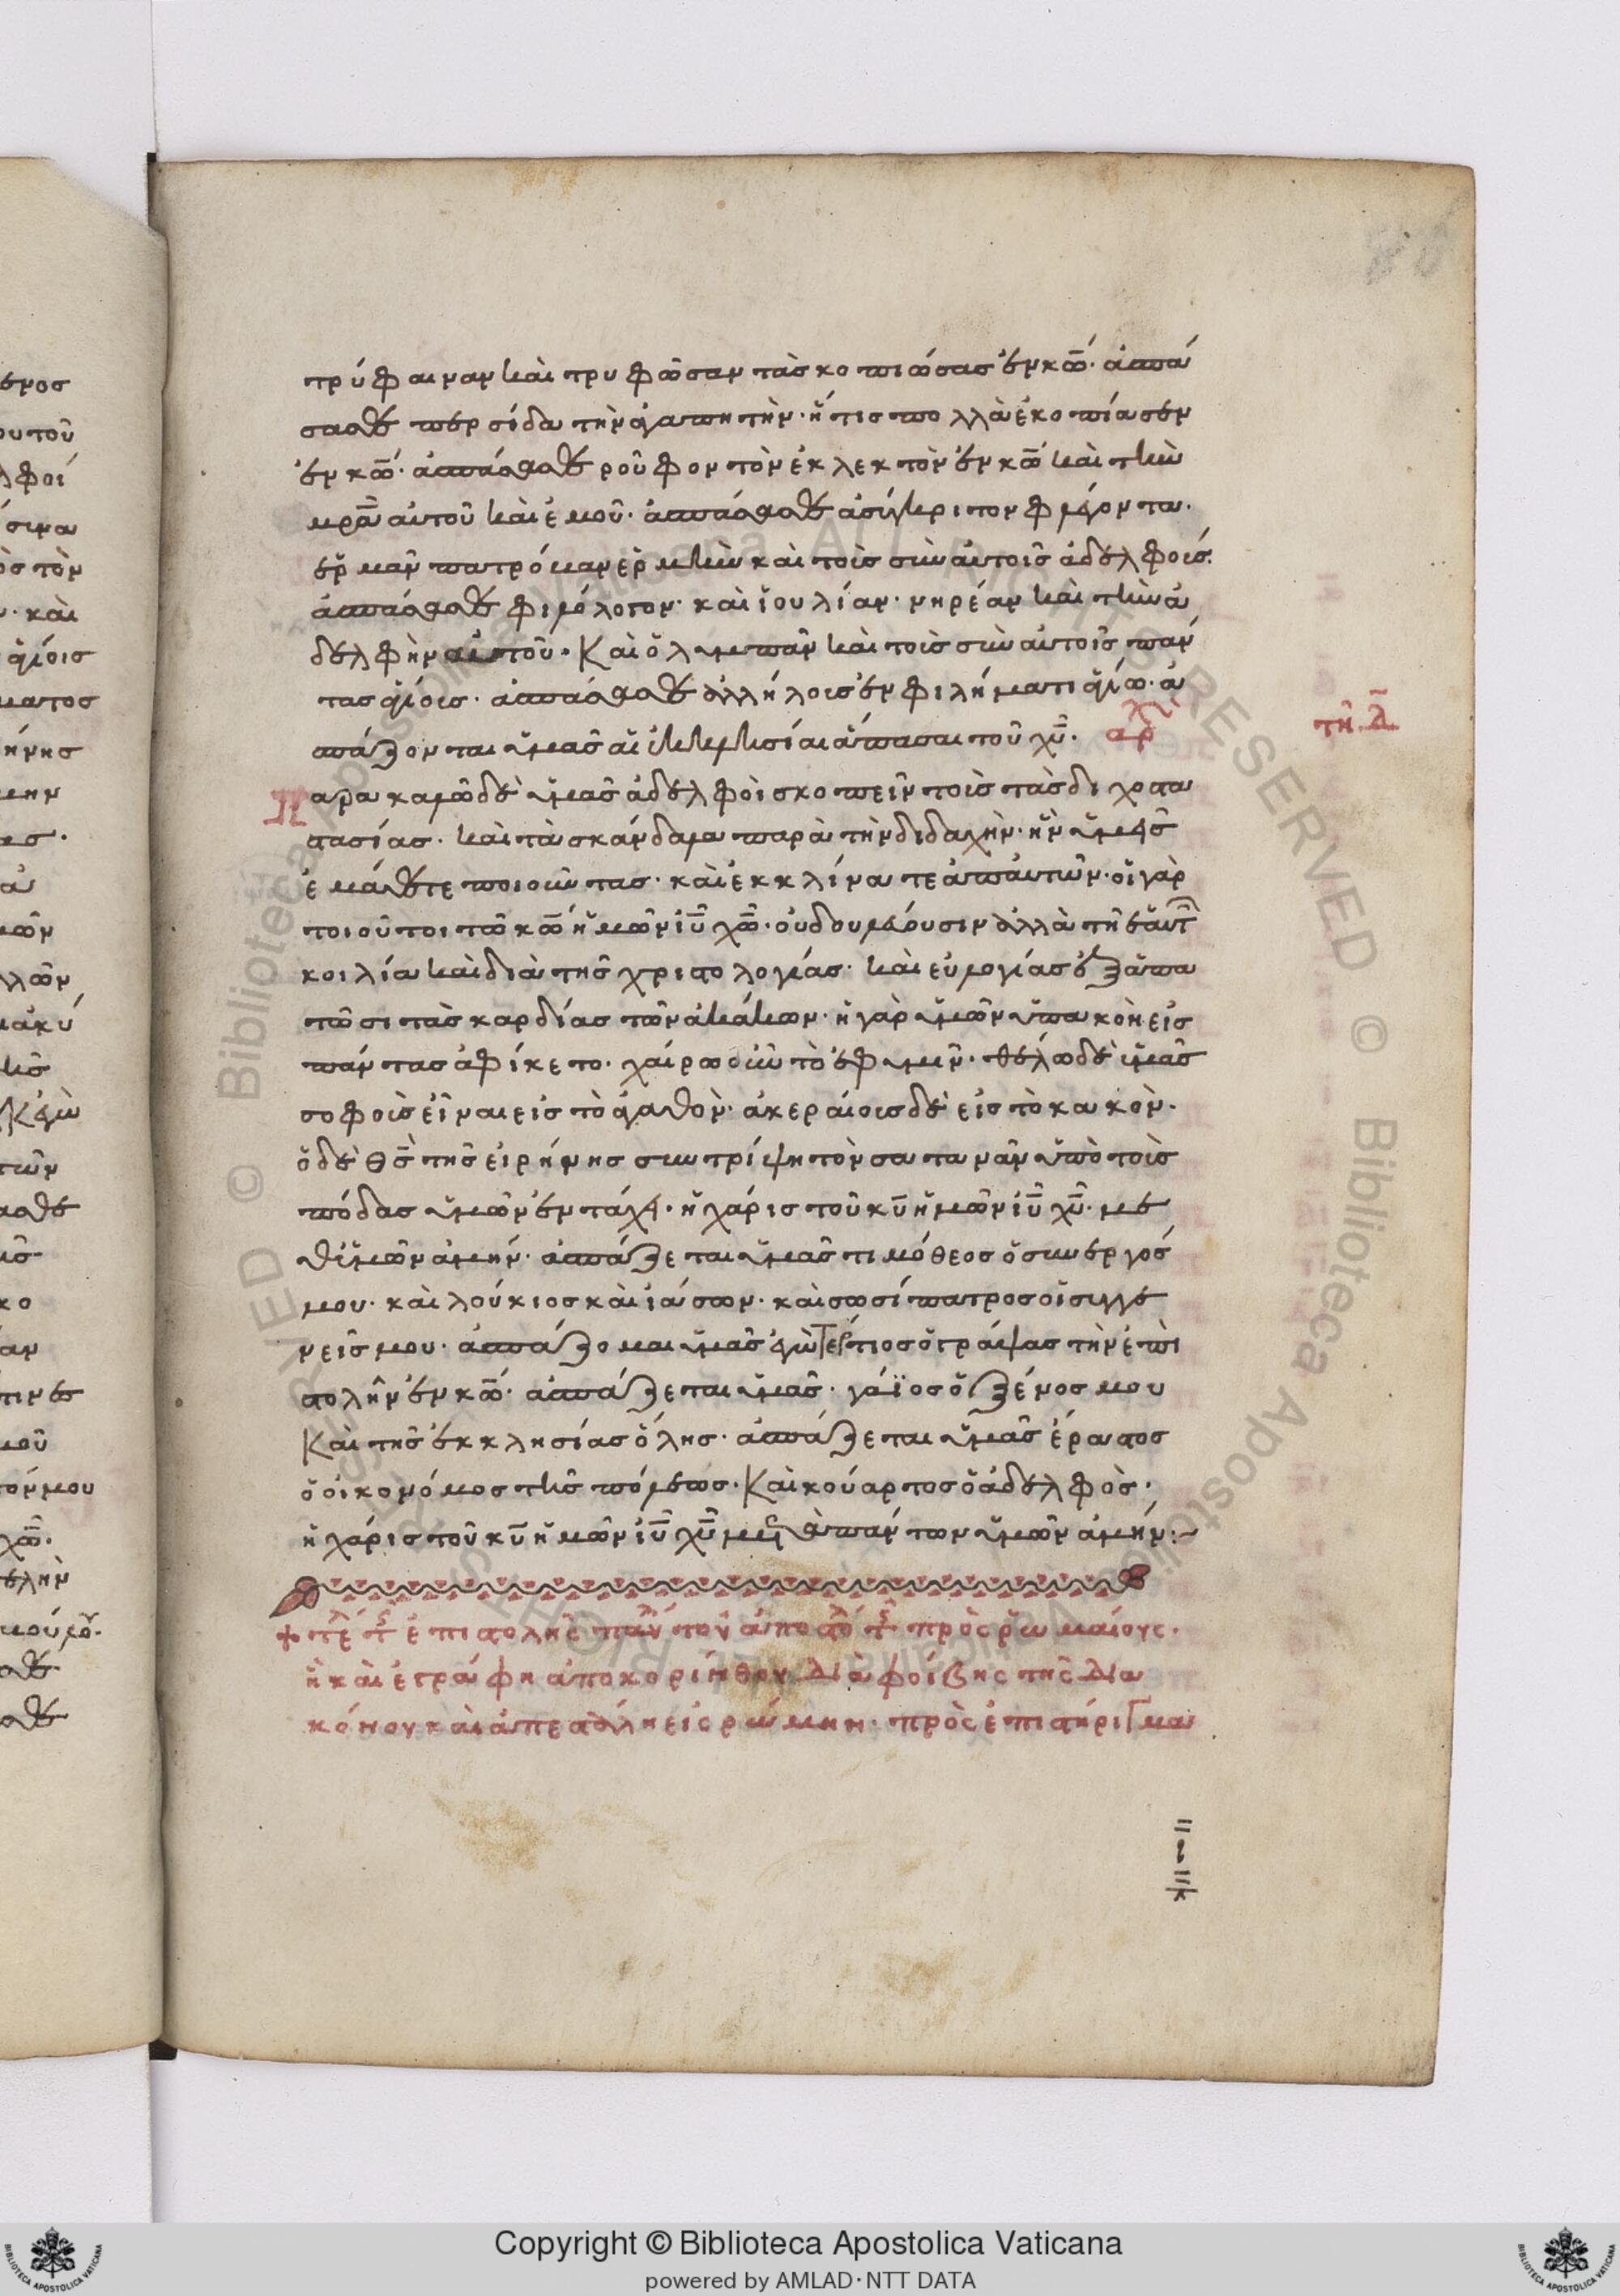 τρύφαιναν καὶ τρυφῶσαν τὰς κοπιώσας ἐν κῶ· ἀσπά
σασθε περσίδα τὴν ἀγαπητὴν· ἥτις πολλὰ ἐκοπίασεν
ἐν κῶ· ἀσπάσασθε ροῦφον τὸν ἐκλεκτὸν ἐν κῶ καὶ τὴν
μρᾶ αὐτοῦ καὶ ἐμοῦ· ἀσπάσασθε ἀσύγκριτον φλέγοντα·
ἑρμᾶν πατρόμαν ἑρμὴν καὶ τοὺς σὺν αὐτοῖς ἀδελφοὺς·
ἀσπάσασθε φιλόλογον· καὶ ἰουλίαν· νηρέαν καὶ τὴν ἀ
δελφὴν αὐτοῦ· καὶ ὀλυμπᾶν καὶ τοὺς σὺν αὐτοῖς πάν
τας ἁγίους· ἀσπάσασθε ἀλλήλους ἐν φιλήματι ἁγίω· ἀ
σπάζονται ὑμᾶς αἱ ἐκκλησίαι ἅπασαι τοῦ χῦ·
τῆ λ
Παρακαλῶ δὲ ὑμᾶς ἀδελφοὶ σκοπεῖν τοὺς τὰς διχοστα
στασίας· καὶ τὰ σκάνδαλα παρὰ τὴν διδαχὴν· ἣν ὑμεῖς
ἐμάθετε ποιοῦντας· καὶ ἐκκλίνατε ἀπ αὐτῶν· οἱ γὰρ
τοιοῦτοι τῶ κῶ ἡμῶν ἰῦ χῶ· οὐ δουλεύουσιν ἀλλὰ τῆ ἑαυτ
κοιλία καὶ διὰ τῆς χρηστολογίας· καὶ εὐλογίας ἐξαπα
τῶσι τὰς καρδίας τῶν ἀκάκων· ἡ γὰρ ὑμῶν ὑπακοὴ εἰς
πάντας ἀφίκετο· χαίρω οὖν τὸ ἐφ υμῖν· θέλω δὲ ὑμᾶς
σοφοὺς εἶναι εἰς τὸ ἀγαθὸν· ἀκεραίους δὲ εἰς τὸ κακὸν·
ὁ δὲ θς τῆς εἰρήνης συντρίψη τὸν σατανᾶν ὑπὸ τοὺς
πόδας ὑμῶν ἐν τάχει· ἡ χάρις τοῦ κῦ ἡμῶν ἰῦ χῦ· με
θ ὑμῶν ἀμήν· ἀσπάζεται ὑμᾶς τιμόθεος ὁ συνεργός
μου· καὶ λούκιος καὶ ἰάσων· καὶ σωσίπατρος οἱ συγγε
νεῖς μου· ἀσπάζομαι ὑμᾶς ἐγὼ τέρτιος ὁ γράψας τὴν ἐπι
στολὴν ἐν κῶ· ἀσπάζεται ὑμᾶς· γάϊος ὁ ξένος μου
καὶ τῆς ἐκκλησίας ὅλης· ἀσπάζεται ὑμᾶς ἔραστος
ὁ οἰκονόμος τῆς πόλεως· καὶ κούαρτος ὁ ἀδελφὸς·
ἡ χάρις τοῦ κῦ ἡμῶν ἰῦ χῦ μετὰ πάντων ὑμῶν ἀμήν:~
ἐπιστολῆς παύλου τοῦ ἀποστόλ πρὸς ῥωμαίους·
ἣ καὶ ἐγράφη ἀπο κορίνθου διὰ φοίβης τῆς δια
κόνου καὶ ἀπεστάλη εἰς ρώμην· πρὸς ἐπιστήριγμα